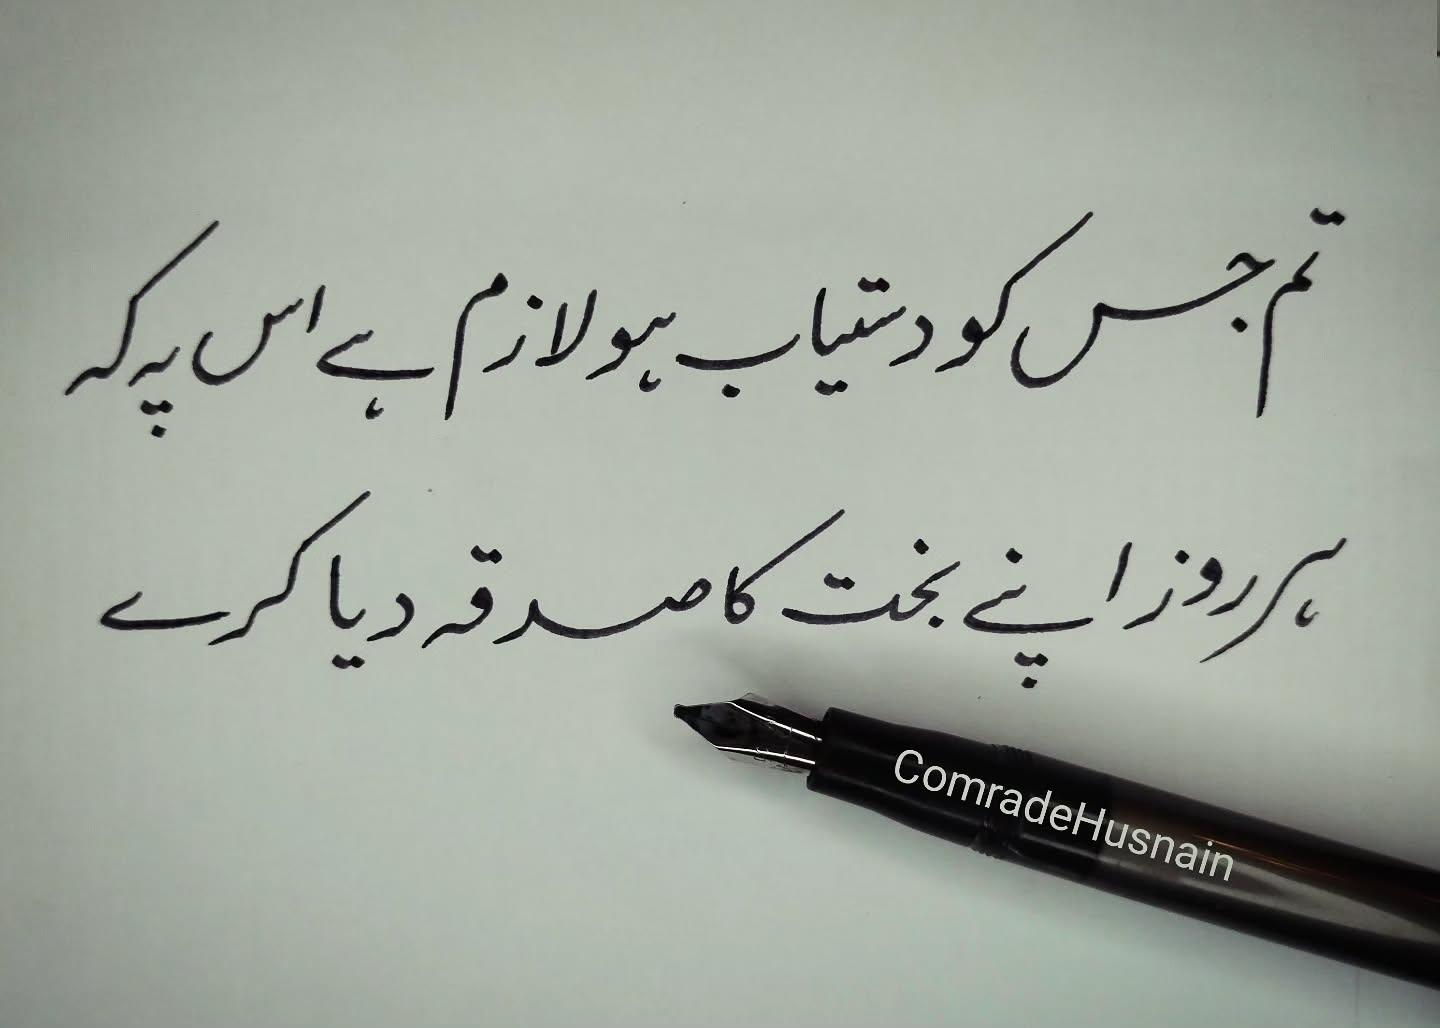 تم جس کو دستیاب ہو لازم ہے اس پہ کہ
ہر روز اپنے بخت کا صدقہ دیا کرے
ComradeHusnain